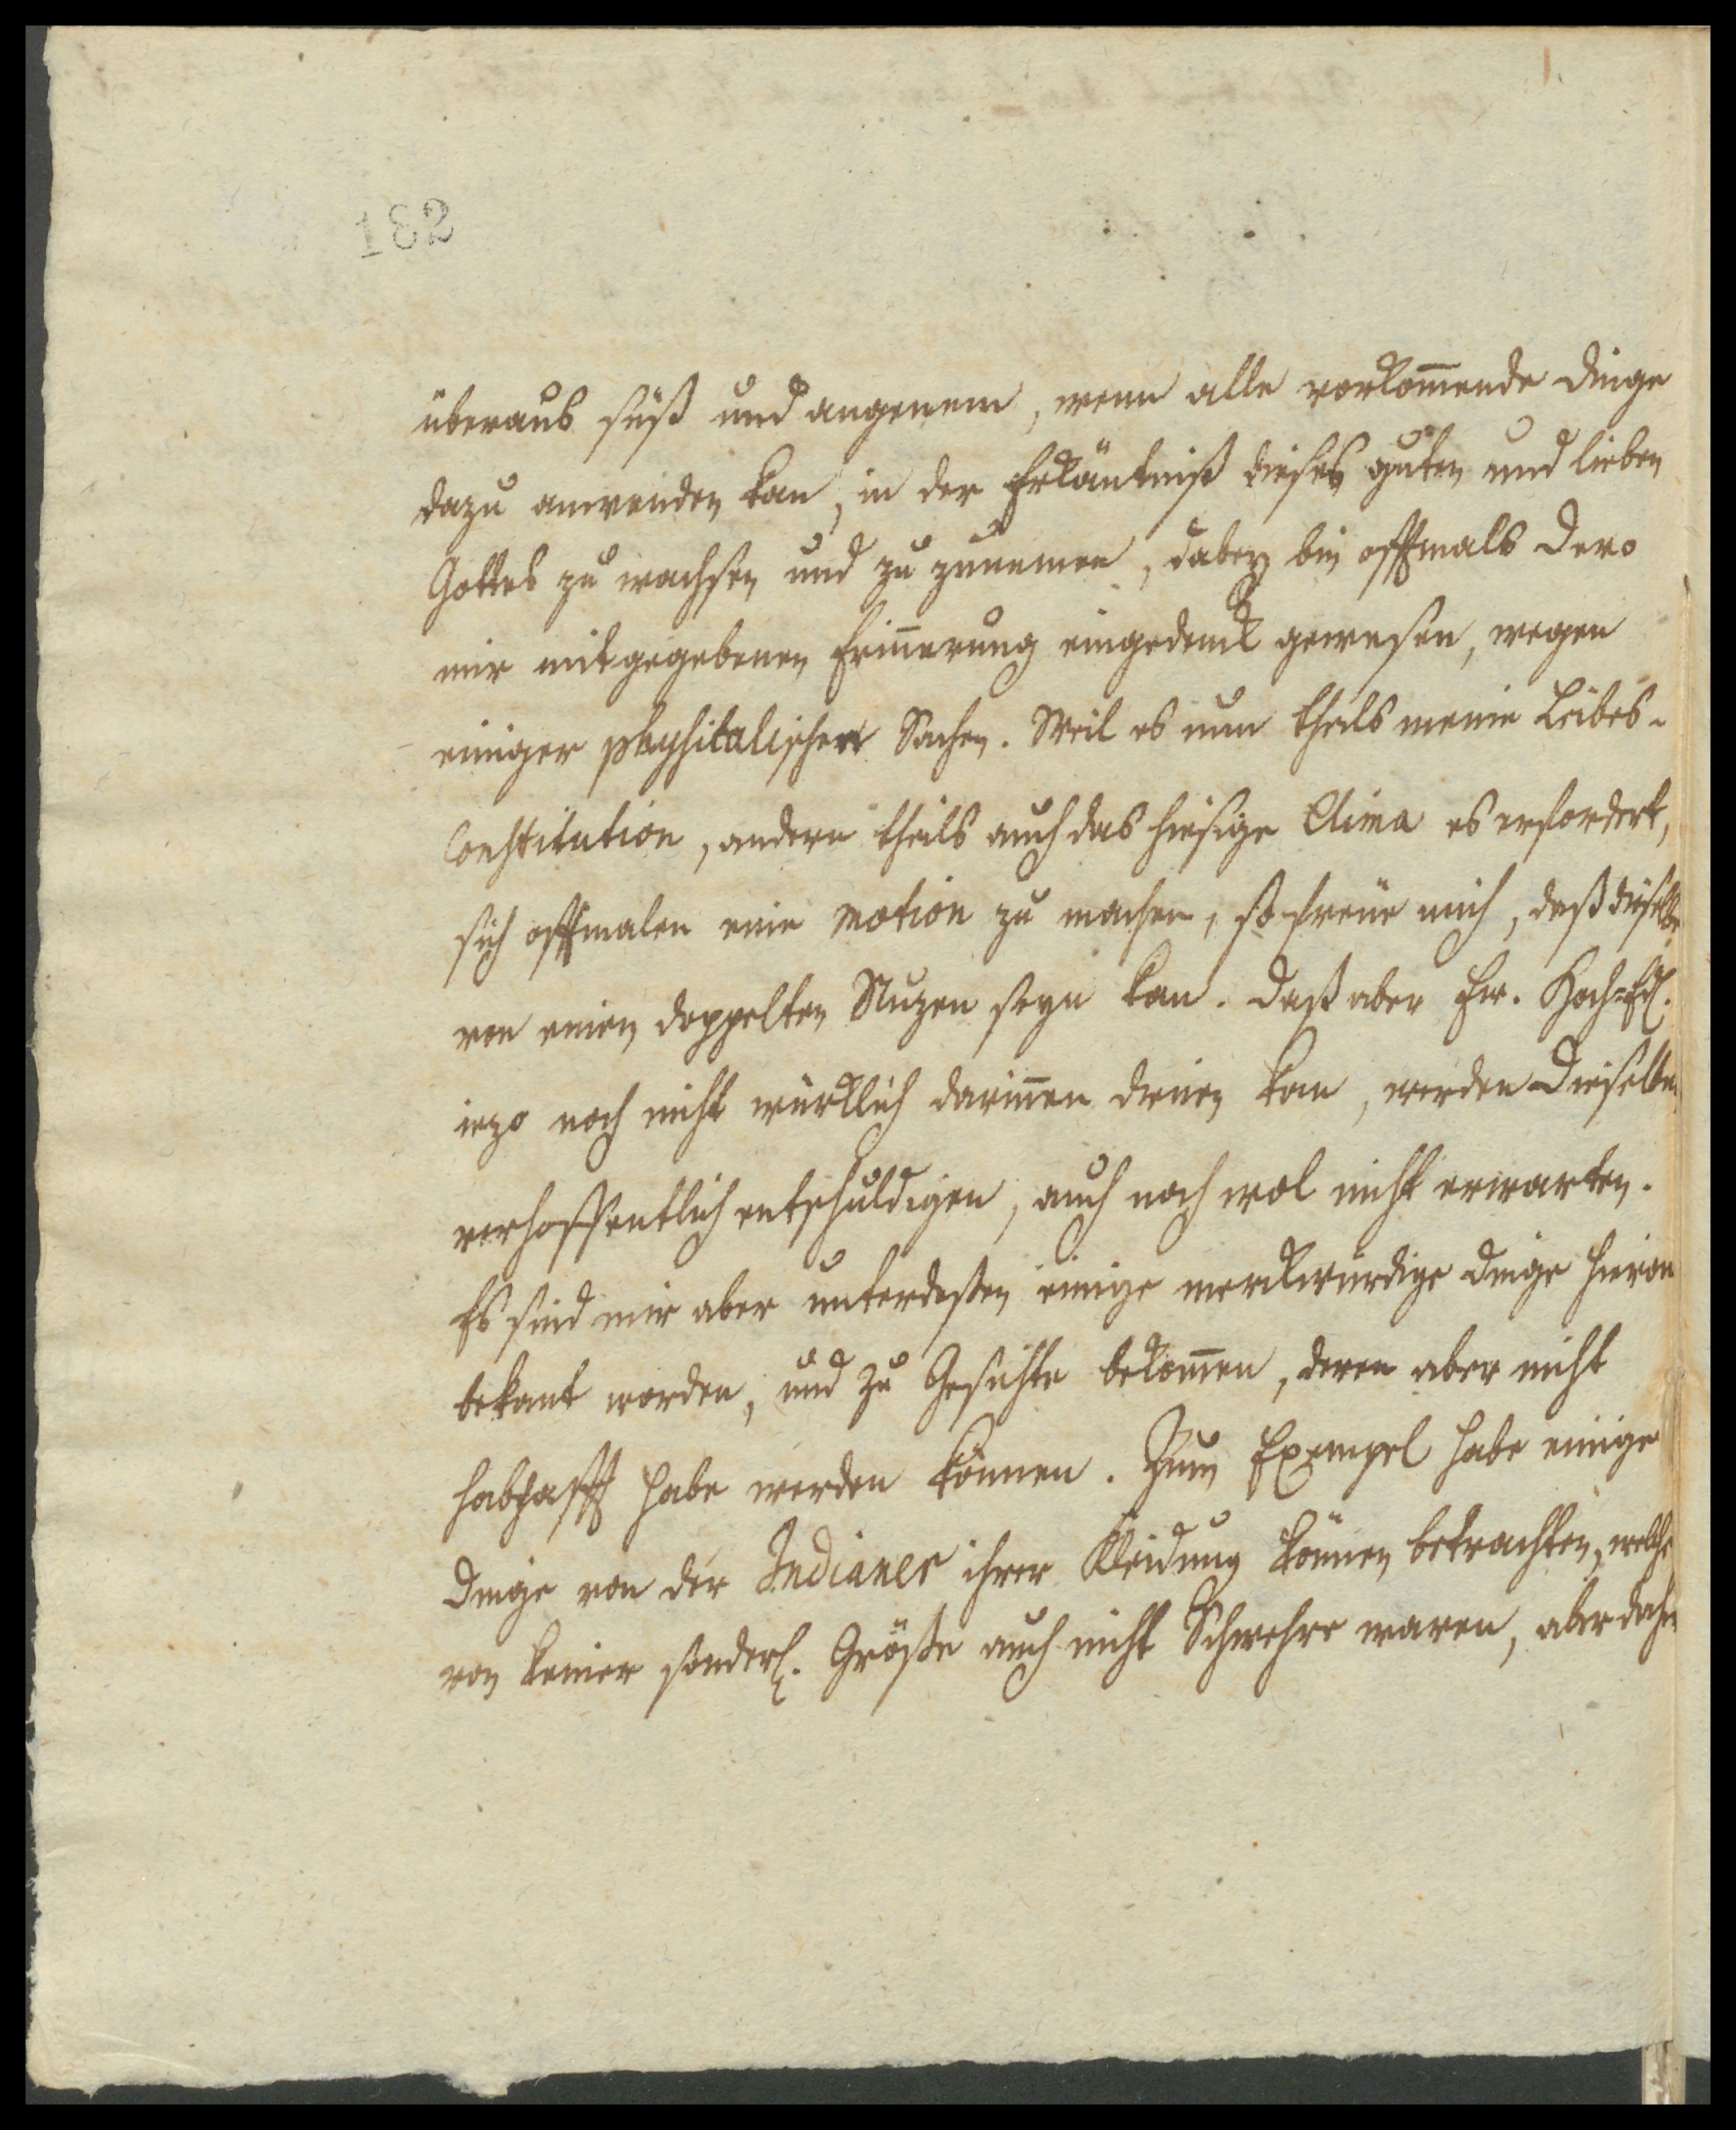 182
überaus süß und angenem, wenn alle vorkom̄ende Dinge
dazu anwenden kan, in der Erkäntniß dieses guten und lieben
Gottes zu wachsen und zu zunemen, dabey bin offtmals Dero
mir mitgegebenen Erin̄erung eingedenck gewesen, wegen
einiger physicalischer Sachen. Weil es nun theils meine Leibes-
Constitution, andern theils auch das hiesige Clima es erfordert,
sich offtmalen eine motion zu machen, so freue mich, daß dieselbe
von einen doppelten Nuzen seyn kan. Daß aber Ew. Hoch-Ed.
iezo noch nicht würcklich darin̄en dienen kan, werden Dieselben
verhoffentlich entschuldigen, auch noch wol nicht erwarten.
Es sind mir aber unterdeßen einige merckwürdige Dinge hievon
bekant worden, und zu Gesichte bekom̄en, deren aber nicht
habhafft habe werden können. Zum Exempel habe einige
Dinge von der Indianer ihrer Kleidung können betrachten, welche
von keiner sonderl. Größe auch nicht Schwehre waren, aber